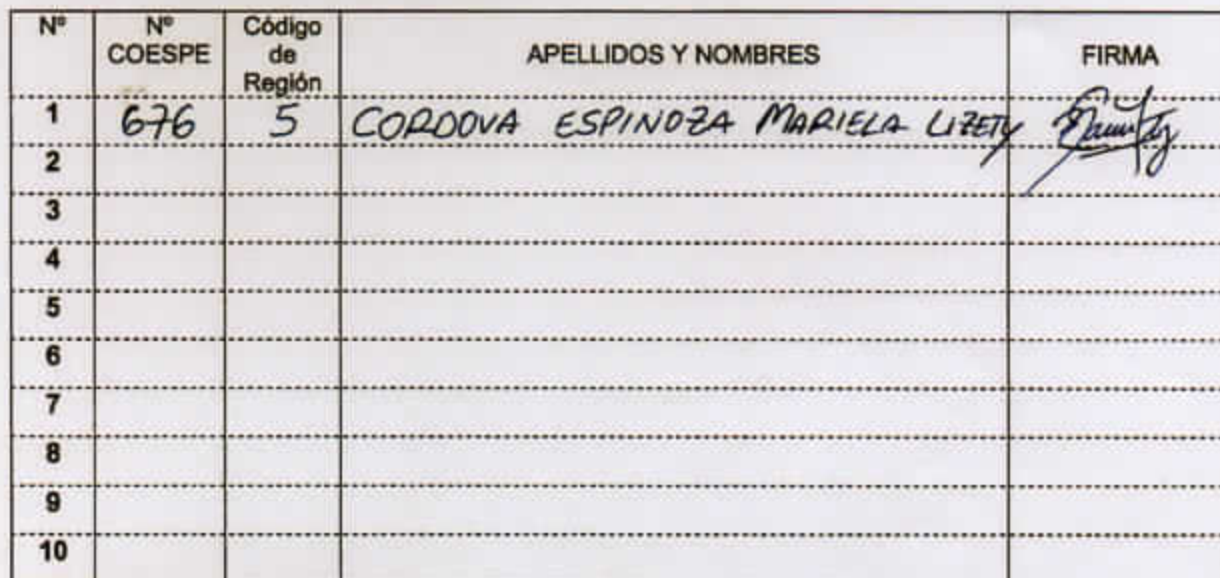 Nº Nº COESPE Código de Región APELLIDOS Y NOMBRES FIRMA
1 676 5 CORDOVA ESPINOZA MARIELA LIZETY
2
3
4
5
6
7
8
9
10